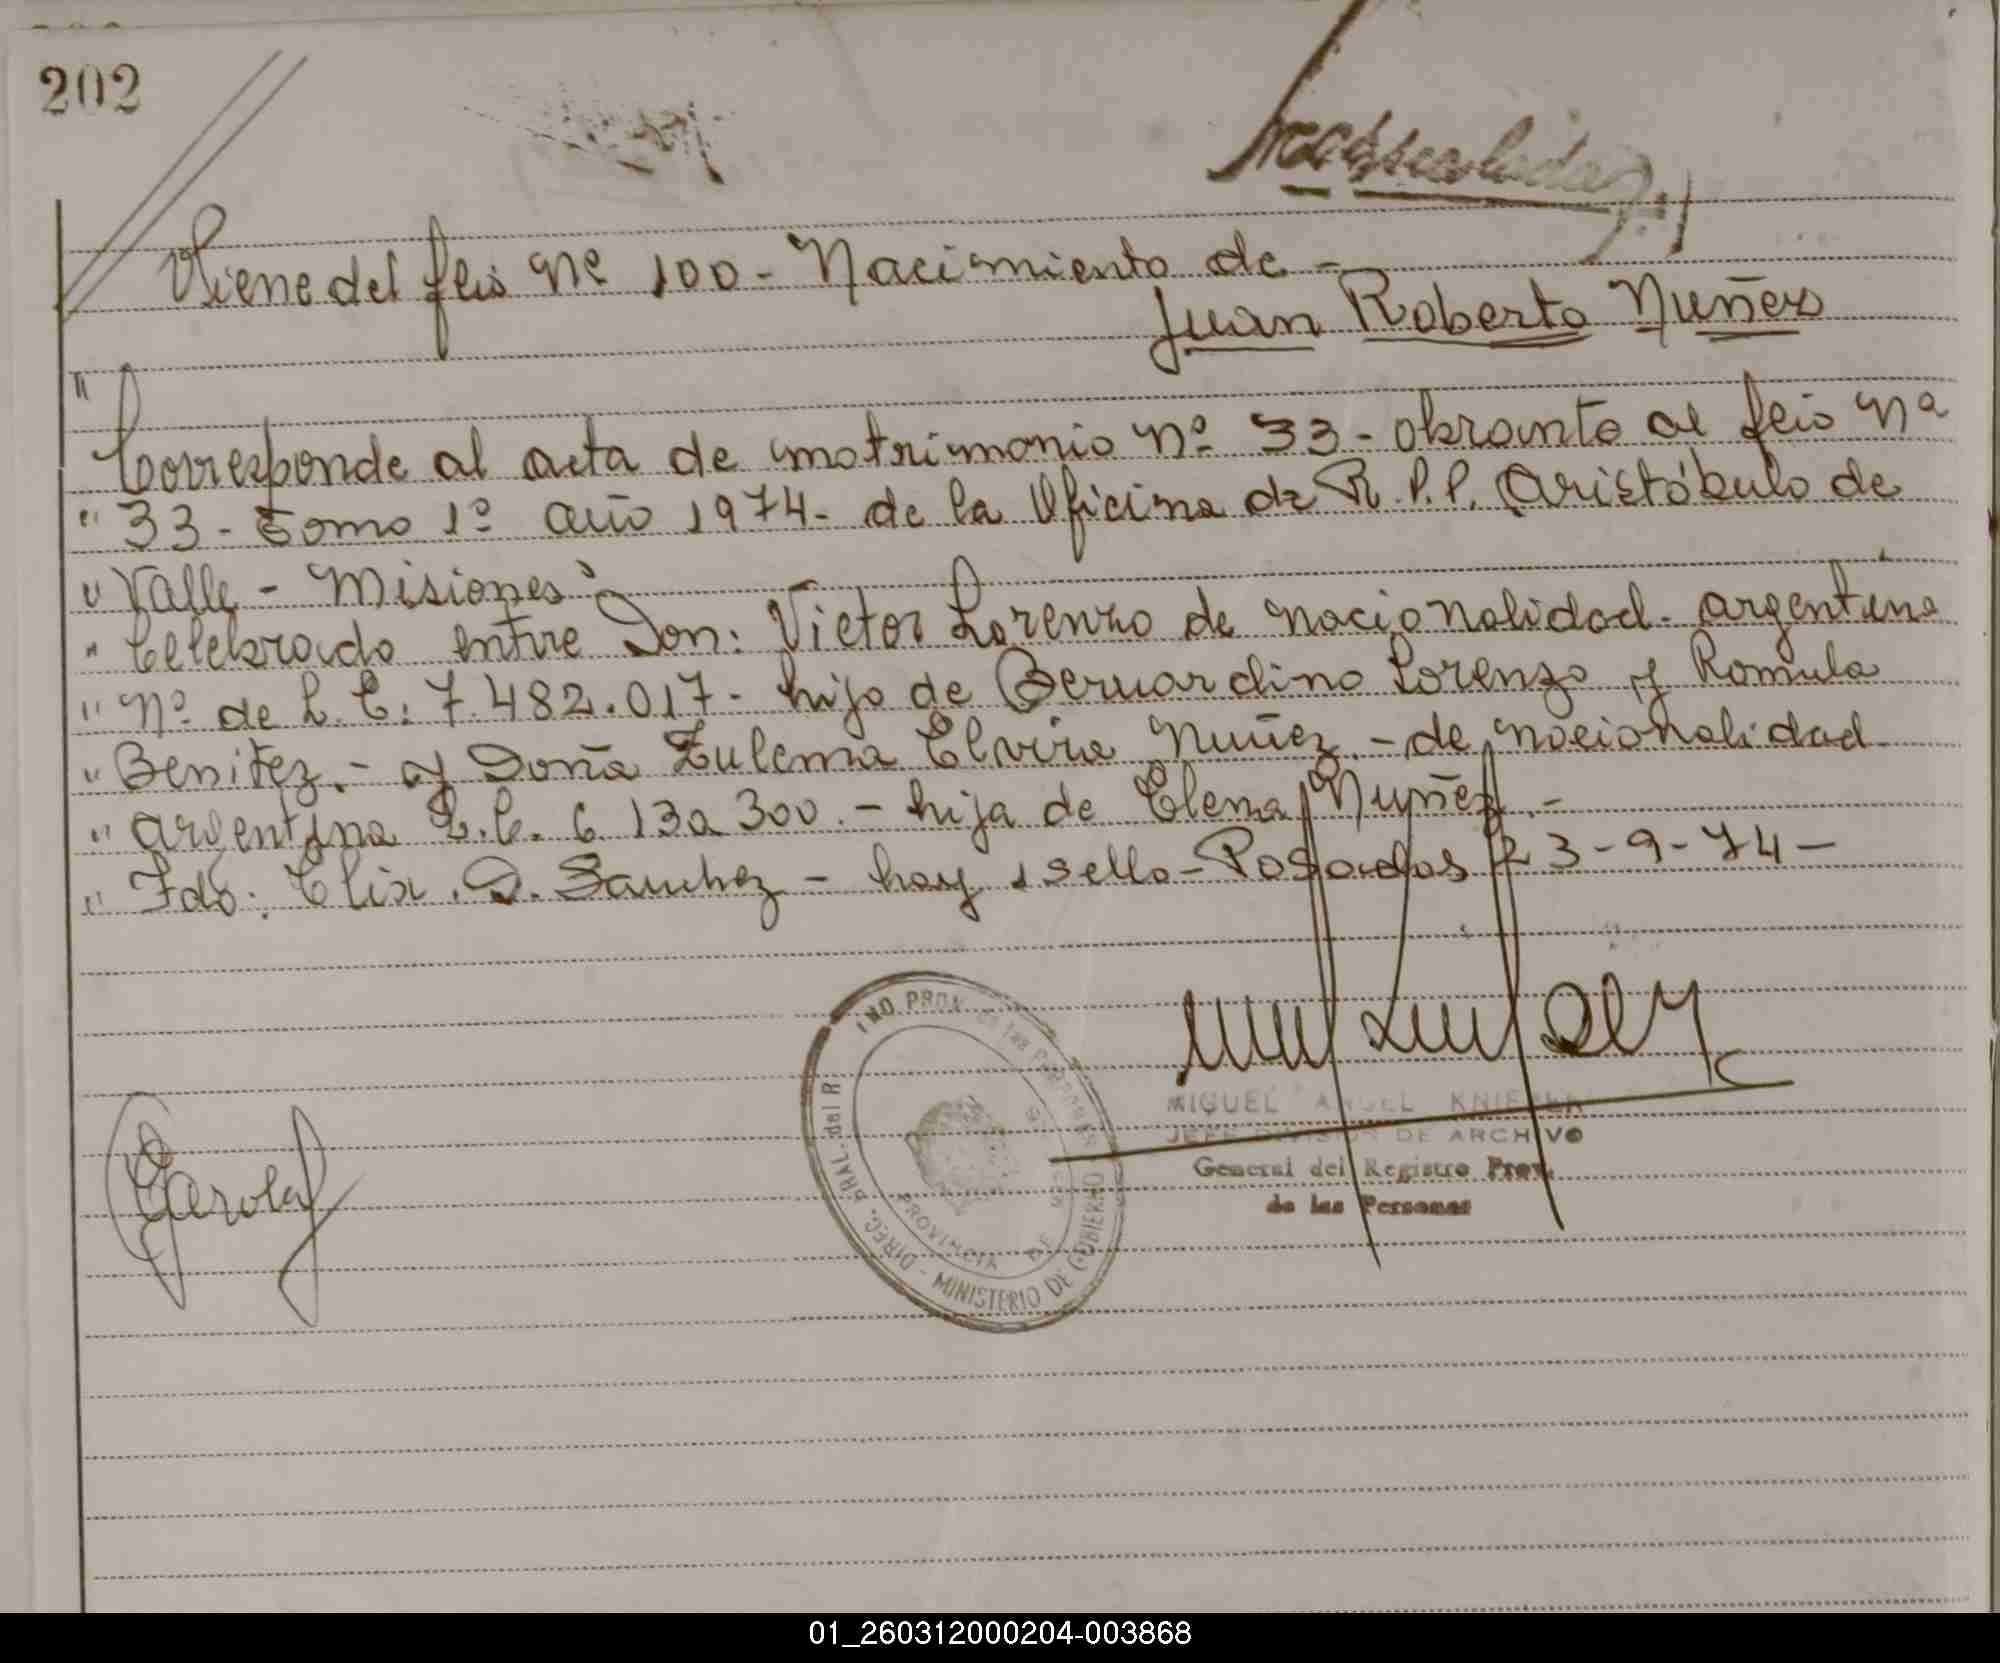 202
Viene del feio Nº 100 - Nacimiento de -
Juan Roberto Nuñez
"
" Corresponde al acta de matrimonio Nº 33 - obrante al feio Nº
" 33 - Tomo 1º año 1974 - de la Oficina de R. P.P. Aristóbulo de
" Valle - Misiones"
" Celebrado entre Don: Victor Lorenzo de nacionalidad - argentina
" Nº de L. E. 7.482.017 - hijo de Bernardino Lorenzo y Romula
" Benitez. - y Doña Zulema Elvira Nuñez - de nacionalidad
" argentina L.C. 6 130 300. - hija de Elena Nuñez. -
" Fdo: Elix. D. Sanchez - hay 1 sello - Posadas 23-9-74 -
DIREC. GRAL. del R IND. PROV. de las Personas - MINISTERIO DE GOBIERNO
PROVINCIA DE
MIGUEL ANGEL
JEFE DIVISION DE ARCHIVO
General del Registro Prov.
de las Personas
01_260312000204-003868